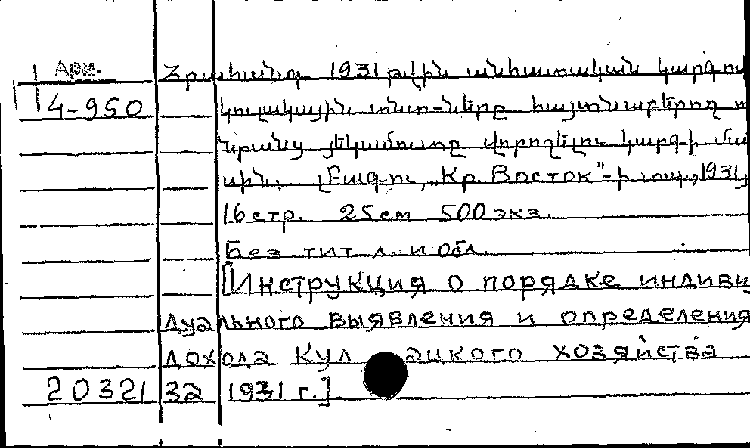 Арм. Հրահանգ 1931 թվին անհատական կարգով
4-950 կուլակային տնտ-ները հայտնաբերող
նրանց յեկամուտը վորոշելու կարգ-ի մա
սին. [Բագու, „Кр. Восток"-ի տպ., 1931]
16 стр. 25 см 500 экз.
Без тит. л. и обл.
[Инструкция о порядке индиви
дуального выявления и определения
дохода кул ацкого хозяйства
20321 32 1931 г.]